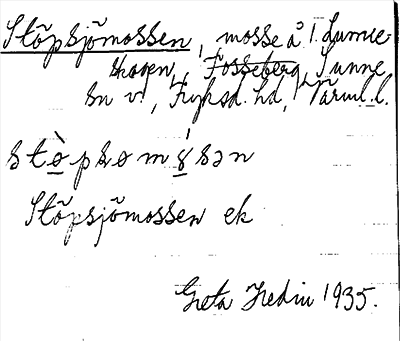 Stöpsjömossen, mosse å l. Lunne-
skogen, Fosseberg, Sunne
sn v., Fryksd. hd, Värml. l.
stø̀psøm ɣ́sən
Stöpsjömossen ek
Greta Hedin 1935.